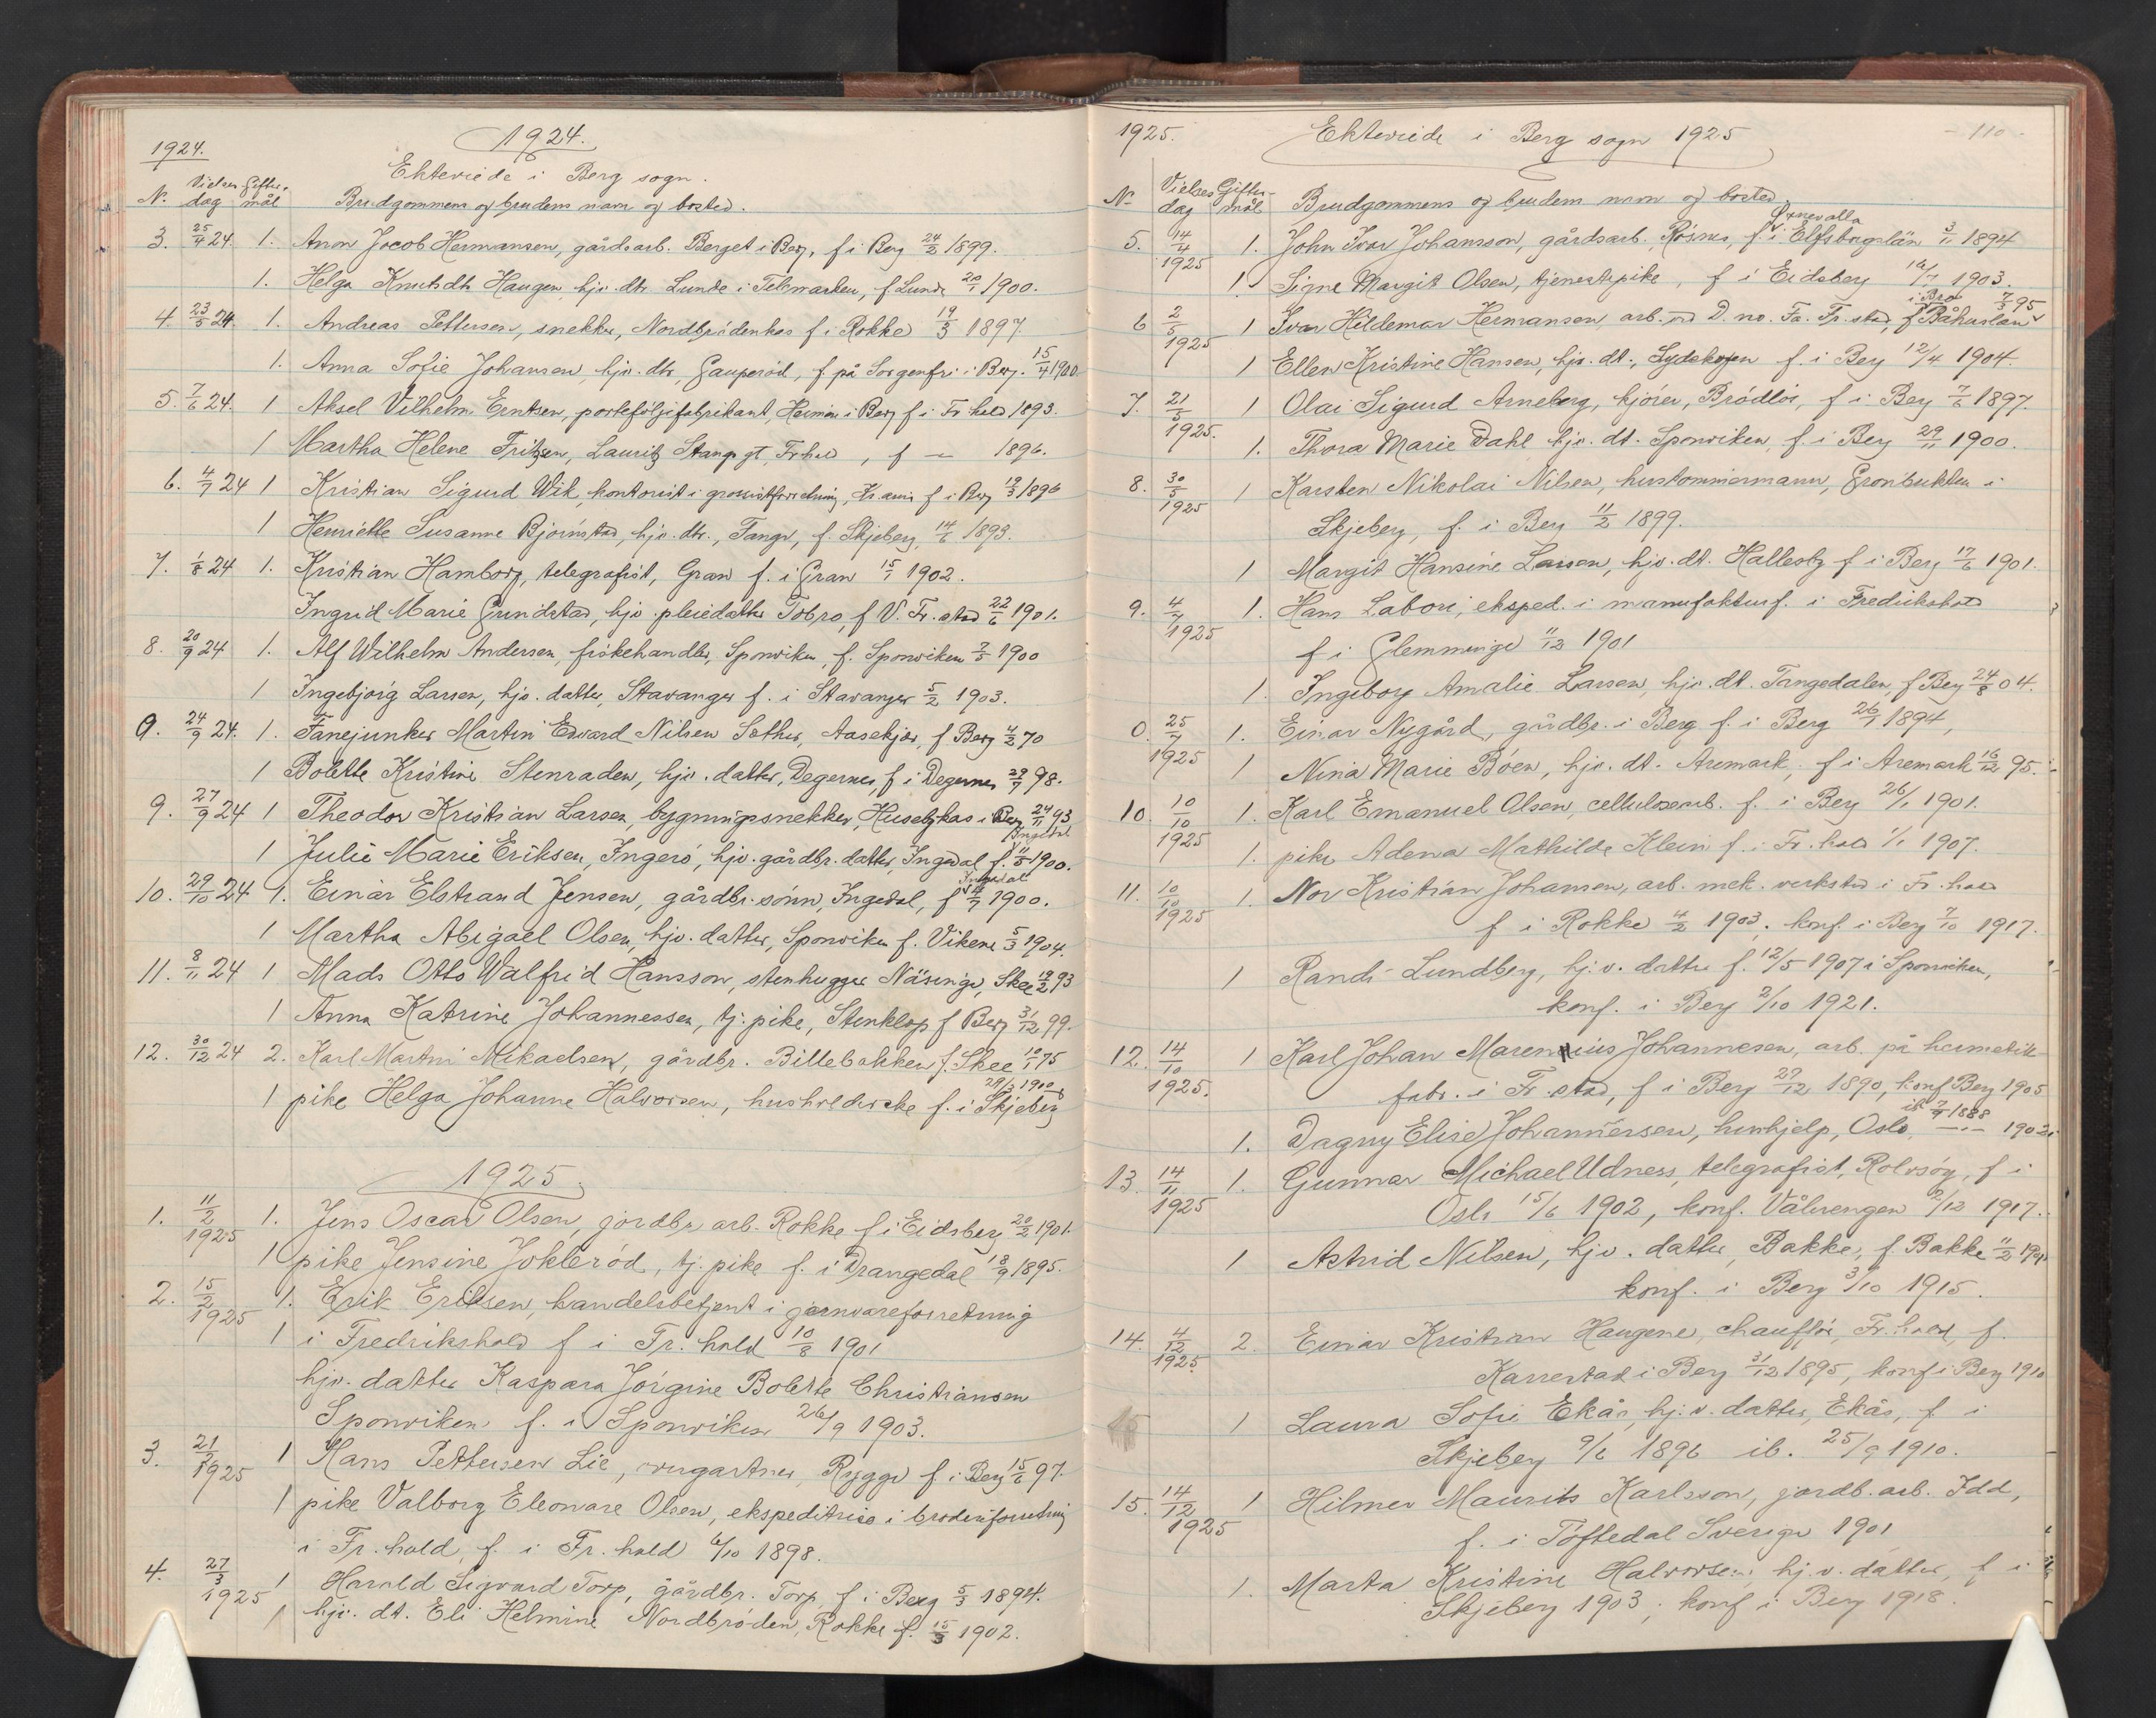 1924.
1924.
Ektevìede i Berg sogn.
N. Vielses dag Gifter-mål Brudgommens og brudens navn og bosted.
3. 25/4 24 1. Anon Jacob Hermansen, gårdsarb. Berget i Berg, f i Berg 24/2 1899.
1. Helga Knutsdtr Haugen hjv. dtr Lunde i Telemarken, f. Lunde 20/1 1900.
4. 23/5 24. 1. Andreas Pettersen, snekker, Nordbrödenkas f i Rokke 19/3 1897
1. Anna Sofie Johansen, hjv. dtr, Gauperöd, f på Sorgenfri i Berg. 15/4 1900
5. 7/6 24. 1 Aksel Vilhelm Erntsen, porteföljefabrikant, i Berg f i Fr.hald 1893.
1 Martha Helene Fritzen, Lauritz Stangs gt, Fr.hald, f — 1896.
6. 4/7 24 1 Kristian Sigurd Wik, kontorist i grossistforretning, Kr.ania f i Berg 19/3 1896
1 Henriette Susanne Bjørnstad, hjv. dtr., Tange, f. Skjeberg 14/6 1893.
7. 1/8 24 1. Kristian Hamborg, telegrafist, Gran f. i Gran 15/1 1902.
Ingrid Marie Grindstad, hjv. pleiedatter Tobro, f V. Fr.stad 22/6 1901.
8. 20/9 24 1. Alf Wilhelm Andersen, fiskehandler, Sponviken, f. Sponviken 7/5 1900
1 Ingebjørg Larsen, hjv. datter, Stavanger f. i Stavanger 5/2 1903.
9. 24/9 24. 1. Fanejunker Martin Edvard Nilsen Sæther, Aasekjær, f Berg 4/2 70
1 Bolette Kristine Stenraden, hjv. datter, Degernes, f i Degernes 29/7 98.
9. 27/9 24 1 Theodor Kristian Larsen, bygningssnekker, Huselykas i Berg 24/11 93
1 Julie Marie Eriksen, Ingerö, hjv. gårdbr. datter, Ingedal f. Ingedal 11/5 1900.
10. 29/10 24 1. Einar Elstrand Jensen, gårdbr. sønn, Ingedal, f Ingedal 1900.
1 Martha Abigael Olsen, hjv. datter, Sponviken f. Vikene 5/3 1904.
11. 8/11 24 1 Mads Otto Walfrid Hansson, stenhugger Näsinge, Skee 19/2 93
1 Anna Katrine Johannessen, tj. pike, Stenklop f Berg 31/12 99.
12. 30/12 24 2. Karl Martin Mikaelsen, gårdbr. Billebakken f. Skee 12/1 75
1 pike Helga Johanne Halvorsen, husholderske f. i Skjeberg 29/3 1900
1925.
1. 11/2 1925 1. Jens Oscar Olsen, jordbr. arb. Rokke f i Eidsberg 20/2 1901.
1 pike Jensine Jokleröd, tj. pike f. i Drangedal 18/9 1895.
2. 15/2 1925 1. Erik Eriksen, handelsbetjent i jernvareforretning
1 i Fredrikshald f i Fr.hald 10/8 1901
hjv. datter Kaspara Jörgine Bolette Christiansen
Sponviken f. i Sponviken 26/9 1903.
3. 21/2 1925 1 Hans Pettersen Lie, Rygge f i Berg 15/6 97.
1 pike Valborg Eleonore Olsen, ekspeditrise i broderiforretning
i Fr.hald, f. i Fr.hald 6/10 1898.
4. 27/3 1925 1 Harald Sigvard Torp, gårdbr. Torp, f i Berg 5/3 1894.
1 hjv. dt. Eli Helmine Nordbröden, Rokke f. 15/3 1902.
1925. Ekteviede i Berg sogn 1925 - 110 -
N Vielses dag Gifter-mål Brudgommens og brudens navn og bosted
5. 14/4 1925 1. John Ivar Johansson, gårdsarb., Rösnes, f i Elfsborgslän 3/11 1894
1. Signe Margit Olsen, tjenestepike, f i Eidsberg 14/7 1903.
6 2/5 1925 1 Ivar Hildemar Hermansen, arb. ved D. no. Fa. Fr.stad, f i Bro Båhuslän 7/3 95
1 Ellen Kristine Hansen, hjv. dt., f. i Berg 12/4 1904.
7. 21/5 1925. 1 Olai Sigurd Arneberg, kjörer, Brödlös, f i Berg 7/6 1897.
1. Thora Marie Dahl hjv. dt. Sponviken f. i Berg 29/11 1900.
8. 30/5 1925 1 Karsten Nikolai Nilsen, hustömmermann, Grönbukten i
Skjeberg, f. i Berg 11/2 1899.
1 Margit Hansine Larsen, hjv. dt. Hallesby f i Berg 17/6 1901.
9. 4/7 1925 1. Hans Labori, eksped. i manufakturf. i Fredrikshald
f i Glemminge 11/12 1901
1. Ingeborg Amalie Larsen, hjv. dt. Tangedalen, f Berg 24/8 04.
0. 25/7 1925 1. Einar Nygård, gårdbr. i Berg f. i Berg 26/7 1894,
1 Nina Marie Böen, hjv. dt. Aremark, f i Aremark 16/12 95.
10. 10/10 1925 1. Karl Emanuel Olsen, cellulosearb. f. i Berg 26/1 1901.
1. pike Adena Mathilde Klein f. i Fr.hald 1/1 1907.
11. 10/10 1925 1. Nor Kristian Johansen, arb. mek. verksted i Fr.hald
f i Rokke 4/2 1903. konf. i Berg 7/10 1917.
1 Randi Lundberg, hj.v. datter f. 12/5 1907 i Sponviken,
konf. i Berg 2/10 1921.
12. 14/10 1925. 1 Karl Johan Marennius Johannesen, arb. på hermetik
fabr. i Fr.stad, f i Berg 29/12 1890, konf Berg 1905
1. Dagny Elise Johannersen, hushjelp, Oslo, ib 7/9 1888 —"— 1902
13. 14/11 1925 1. Gunnar Michael Udness, telegrafist, Rolvsöy, f i
Oslo 15/6 1902, konf. Vålerengen 2/12 1917.
1 Astrid Nilsen, hjv. datter, Bakke, f. Bakke 11/2
konf. i Berg 3/10 1915.
14. 4/12 1925. 2. Einar Kristian Haugene, chaufför, Fr.hald, f.
Karrestad i Berg 31/12 1895, konf i Berg 1910
15 1 Laura Sofie Ekås, hj.v. datter, Ekås, f. i
Skjeberg 9/6 1896 ib. 25/9 1910.
15. 14/12 1925 1 Hilmer Maurits Karlsson, jordb. arb. Idd,
f. i Töftedal Sverige 1901
1. Marta Kristine Halvorsen, hj.v. datter, f i
Skjeberg 1903, konf i Berg 1918.